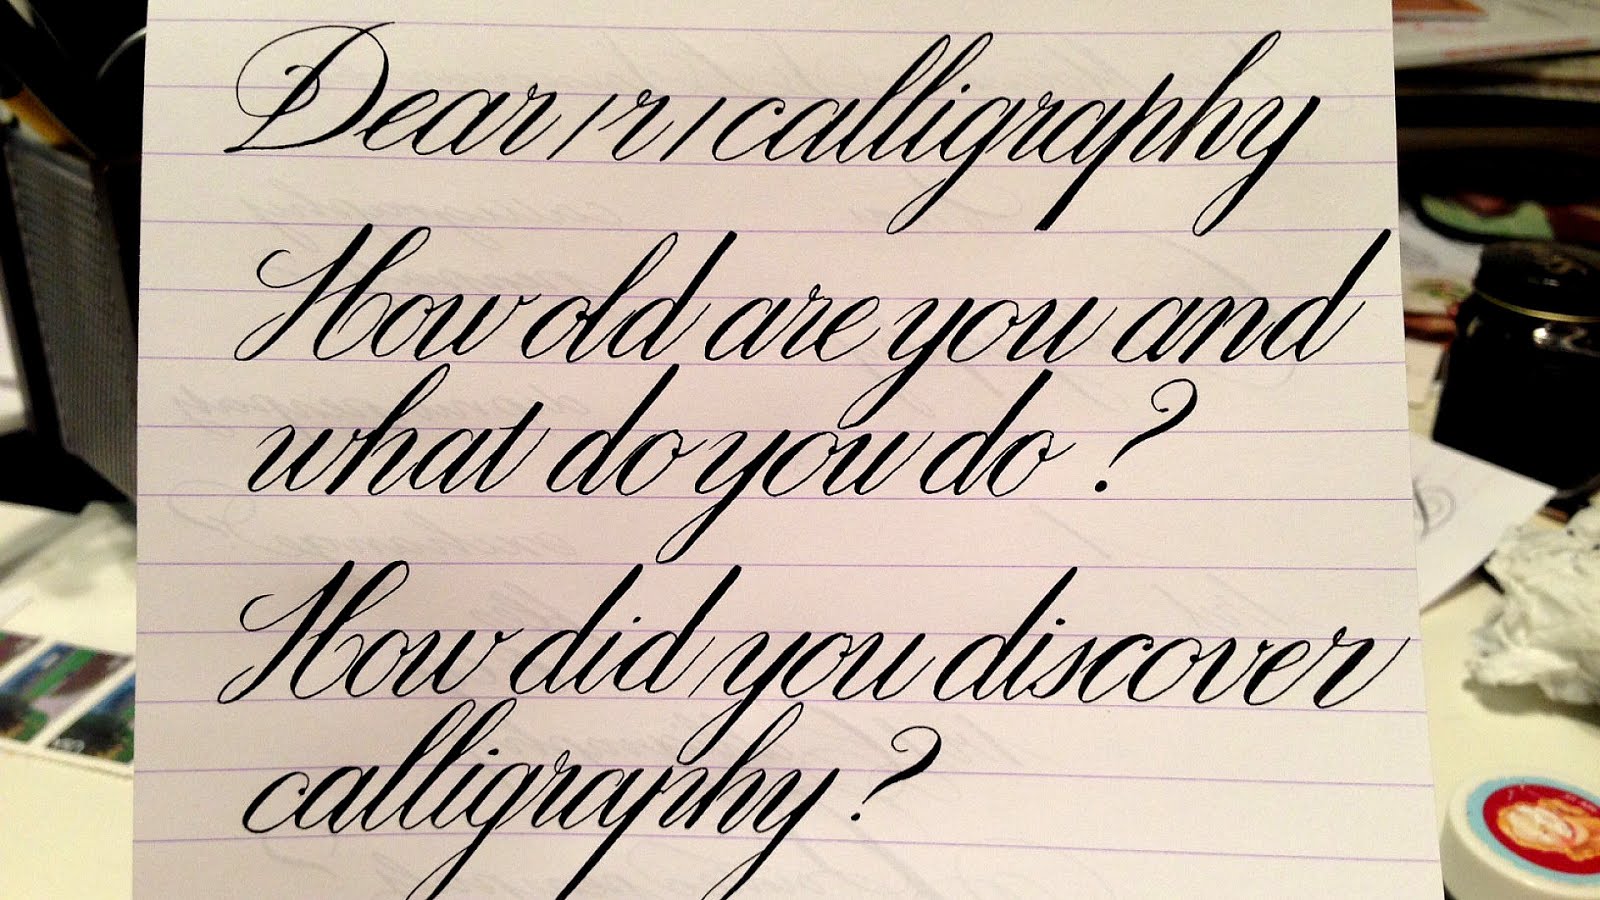 Dear /r/calligraphy
How old are you and
what do you do ?
How did you discover
calligraphy ?